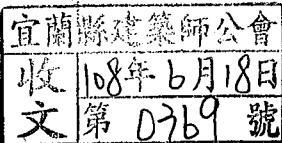 宜蘭縣建築師公會
收文
108年6月18日
第0369號